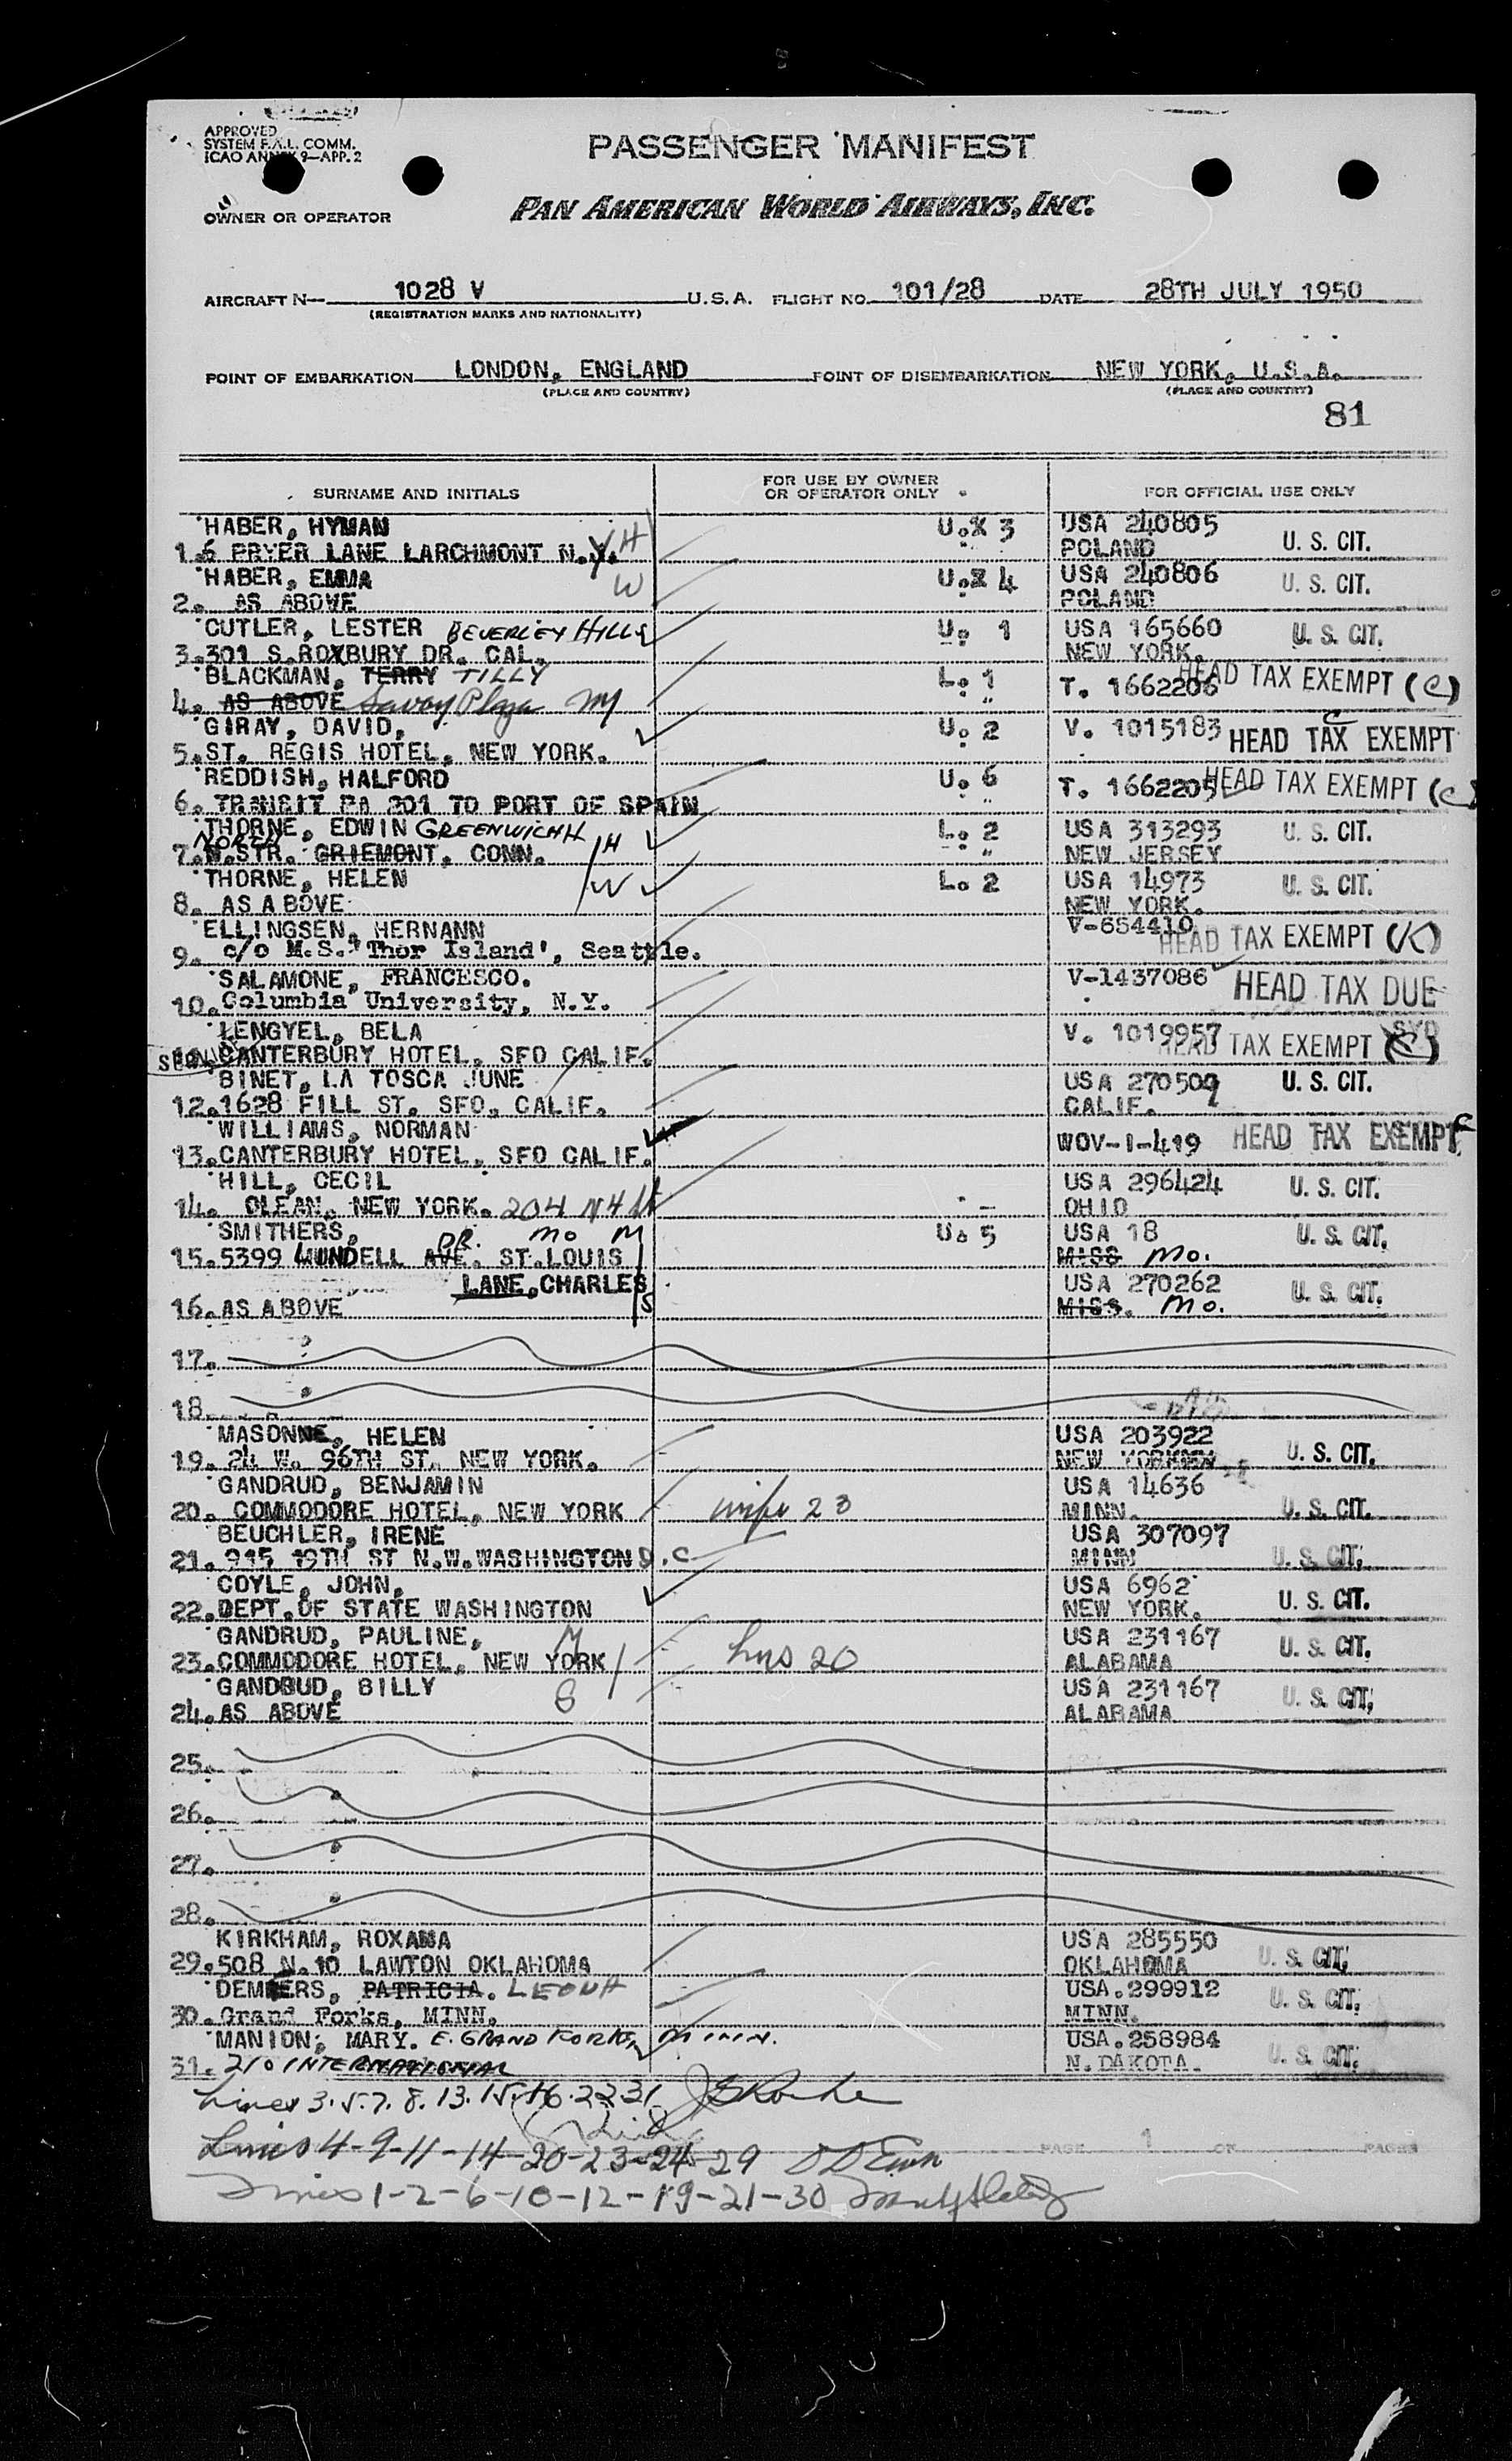 APPROVED
SYSTEM F.A.L. COMM.
ICAO ANNEX 9—APP. 2
PASSENGER MANIFEST
OWNER OR OPERATOR
PAN AMERICAN WORLD AIRWAYS, INC.
AIRCRAFT N— 1028 V U.S.A. FLIGHT NO. 101/28 DATE 28TH JULY 1950
(REGISTRATION MARKS AND NATIONALITY)
POINT OF EMBARKATION LONDON, ENGLAND POINT OF DISEMBARKATION NEW YORK, U.S.A.
(PLACE AND COUNTRY) (PLACE AND COUNTRY)
81
SURNAME AND INITIALS FOR USE BY OWNER OR OPERATOR ONLY FOR OFFICIAL USE ONLY
HABER, HYMAN U. 3 USA 240805
1. 6 PRYER LANE LARCHMONT N.Y. H POLAND U. S. CIT.
HABER, EMMA W U. 4 USA 240806
2. AS ABOVE POLAND U. S. CIT.
CUTLER, LESTER BEVERLEY HILLS U. 1 USA 165660 U. S. CIT.
3. 301 S.ROXBURY DR. CAL. NEW YORK.
BLACKMAN, TERRY TILLY L. 1 T. 1662206 HEAD TAX EXEMPT (C)
4. AS ABOVE Savoy Plaza NY "
GIRAY, DAVID, U. 2 V. 1015183 C
5. ST. REGIS HOTEL, NEW YORK. HEAD TAX EXEMPT
REDDISH, HALFORD U. 6 T. 1662205 HEAD TAX EXEMPT (C)
6. TRANSIT PA 201 TO PORT OF SPAIN "
THORNE, EDWIN GREENWICH H L. 2 USA 313293 U. S. CIT.
7. N.STR. NORTH GRIEMONT, CONN. H " NEW JERSEY
THORNE, HELEN W L. 2 USA 14973 U. S. CIT.
8. AS ABOVE NEW YORK.
ELLINGSEN, HERNANN V-654410
9. c/o M.S.'Thor Island', Seattle. HEAD TAX EXEMPT (K)
SALAMONE, FRANCESCO. V-1437086
10. Columbia University, N.Y. HEAD TAX DUE
LENGYEL, BELA V. 1019957
CANTERBURY HOTEL, SFO CALIF. HEAD TAX EXEMPT (C)
BINET, LA TOSCA JUNE USA 270509 U. S. CIT.
12. 1628 FILL ST. SFO, CALIF. CALIF.
WILLIAMS, NORMAN WOV-1-419 HEAD TAX EXEMPT C
13. CANTERBURY HOTEL, SFO CALIF.
HILL, CECIL USA 296424 U. S. CIT.
14. OLEAN, NEW YORK. 204 N 4 St OHIO
SMITHERS, Mo M U. 5 USA 18 U. S. CIT.
15. 5399 LUNDELL AVE. DR. ST.LOUIS MISS Mo.
LANE, CHARLES S USA 270262 U. S. CIT.
16. AS ABOVE MISS. Mo.
17.
18.
MASONNE, HELEN USA 203922
19. 24 W. 96TH ST. NEW YORK. NEW YORK U. S. CIT.
GANDRUD, BENJAMIN USA 14636
20. COMMODORE HOTEL, NEW YORK wife 23 MINN. U. S. CIT.
BEUCHLER, IRENE USA 307097
21. 915 19TH ST N.W.WASHINGTON D.C MINN U. S. CIT.
COYLE, JOHN, USA 6962
22. DEPT.OF STATE WASHINGTON NEW YORK. U. S. CIT.
GANDRUD, PAULINE, M USA 231167
23. COMMODORE HOTEL, NEW YORK hus 20 ALABAMA U. S. CIT.
GANDBUD, BILLY S USA 231167
24. AS ABOVE ALABAMA U. S. CIT.
25.
26.
27.
28.
KIRKHAM, ROXAMA USA 285550
29. 508 N.10 LAWTON OKLAHOMA OKLAHOMA U. S. CIT.
DEMERS, PATRICIA. LEOUH USA.299912
30. Grand Forks, MINN. MINN. U. S. CIT.
MANION, MARY. E. GRAND FORKS, MINN. USA.258984
31. 210 INTERNATIONAL N.DAKOTA. U. S. CIT.
Lines 3.5.7.8.13.15.16.22 31
Lines 4-9-11-14-20-23-24-29
PAGE 1 OF PAGES
Lines 1-2-6-10-12-19-21-30